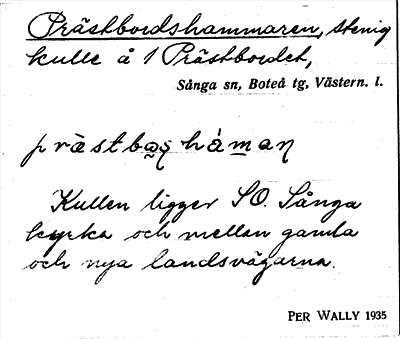 Prästbordshammaren, stenig
kulle å 1 Prästbordet,
Sånga sn, Boteå tg, Västern. l.
Kullen ligger SO. Sånga
kyrka och mellan gamla
och nya landsvägarna.
PER WALLY 1935